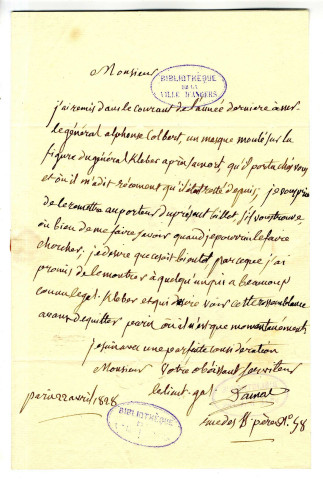 Monsieur
BIBLIOTHÈQUE
DE LA
VILLE D'ANGERS
j'ai remis dans le courant de l'année dernière à mr
le général alphonse Colbert, un masque moulé sur la
figure du général Kleber après sa mort, qu'il porta chez vous
et où il m'a dit récemment qu'il était resté depuis, je vous prie
de le remettre au porteur du présent billet, s'il vous trouve,
ou bien de me faire savoir quand je pourrai le faire
chercher, je desire que ce soit bientot parceque j'ai
promis de le montrer à quelqu'un qui a beaucoup
connu le gal. Kleber et qui desire voir cette ressemblance
avant de quitter paris où il n'est que momentanément
je suis avec une parfaite considération
Monsieur Votre obéissant serviteur
le lieut. gal Damas
paris 22 avril 1828
rue des Sts pères No. 58
BIBLIOTHÈQUE